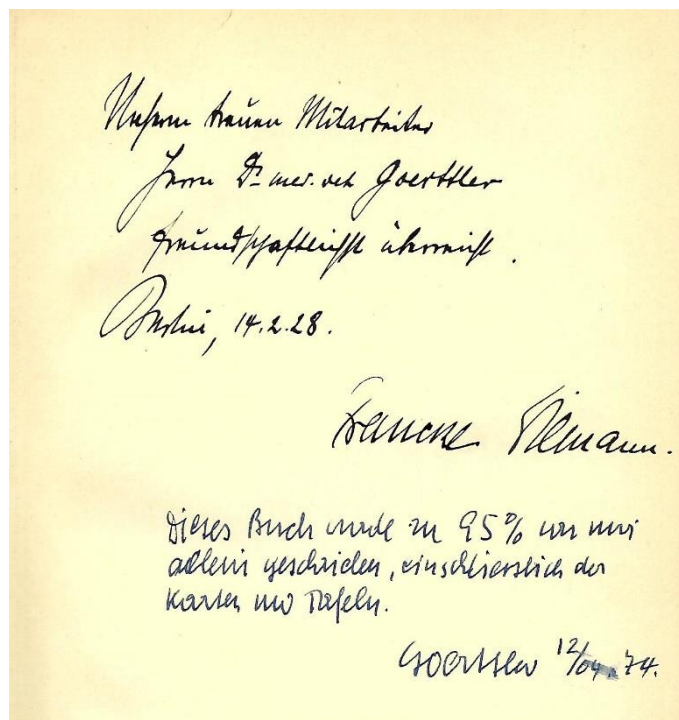 Unserm treuen Mitarbeiter
Herrn Dr. med. vet Goerttler
freundschaftlichst überreicht.
Berlin, 14.2.28.
Francke Ziemann.
Dieses Buch wurde zu 95% von mir
allein geschrieben, einschliesslich der
Karten und Tafeln.
Goerttler 12/04. 74.